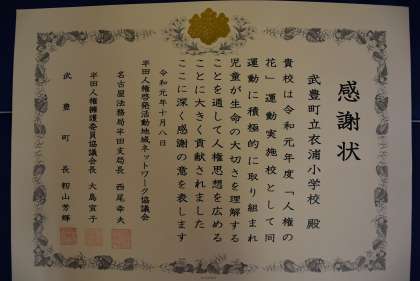 感謝状
武豊町立衣浦小学校 殿
貴校は令和元年度「人権の
花」運動実施校として同
運動に積極的に取り組まれ
児童が生命の大切さを理解する
ことを通して人権思想を広める
ことに大きく貢献されました
ここに深く感謝の意を表します
令和元年十月八日
半田人権啓発活動地域ネットワーク協議会
名古屋法務局半田支局長 西尾幸夫
半田人権擁護委員協議会長 大島宣子
武豊町長 籾山芳輝